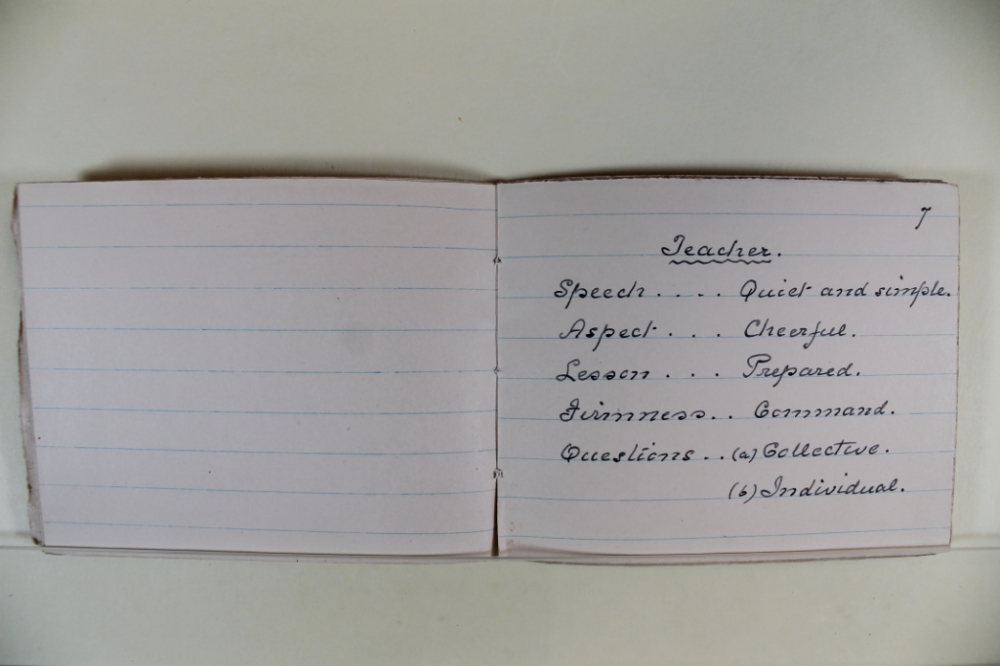 7
Teacher.
Speech .... Quiet and simple.
Aspect ... Cheerful.
Lesson ... Prepared.
Firmness .. Command.
Questions .. (a) Collective.
(b) Individual.